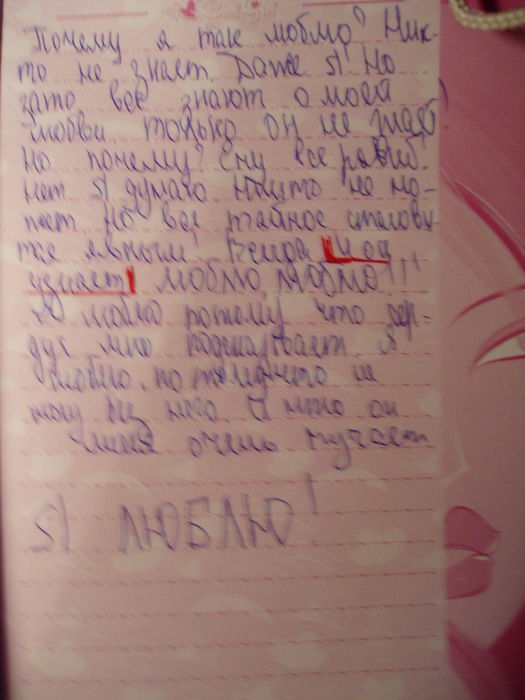 Почему я так люблю? Ник-
то не знает. Даже я! Но
зато все знают о моей
любви только он не знает!
Но почему? Ему все равно?
Нет. Я думаю никто не мо-
жет Но все тайное станови-
тся явным! Всегда И он
узнает! люблю, люблю!!!
Я люблю потому, что сер-
дце мне подсказывает. Я
люблю, потому что не
могу без него. И что он
меня очень мучает
Я ЛЮБЛЮ!